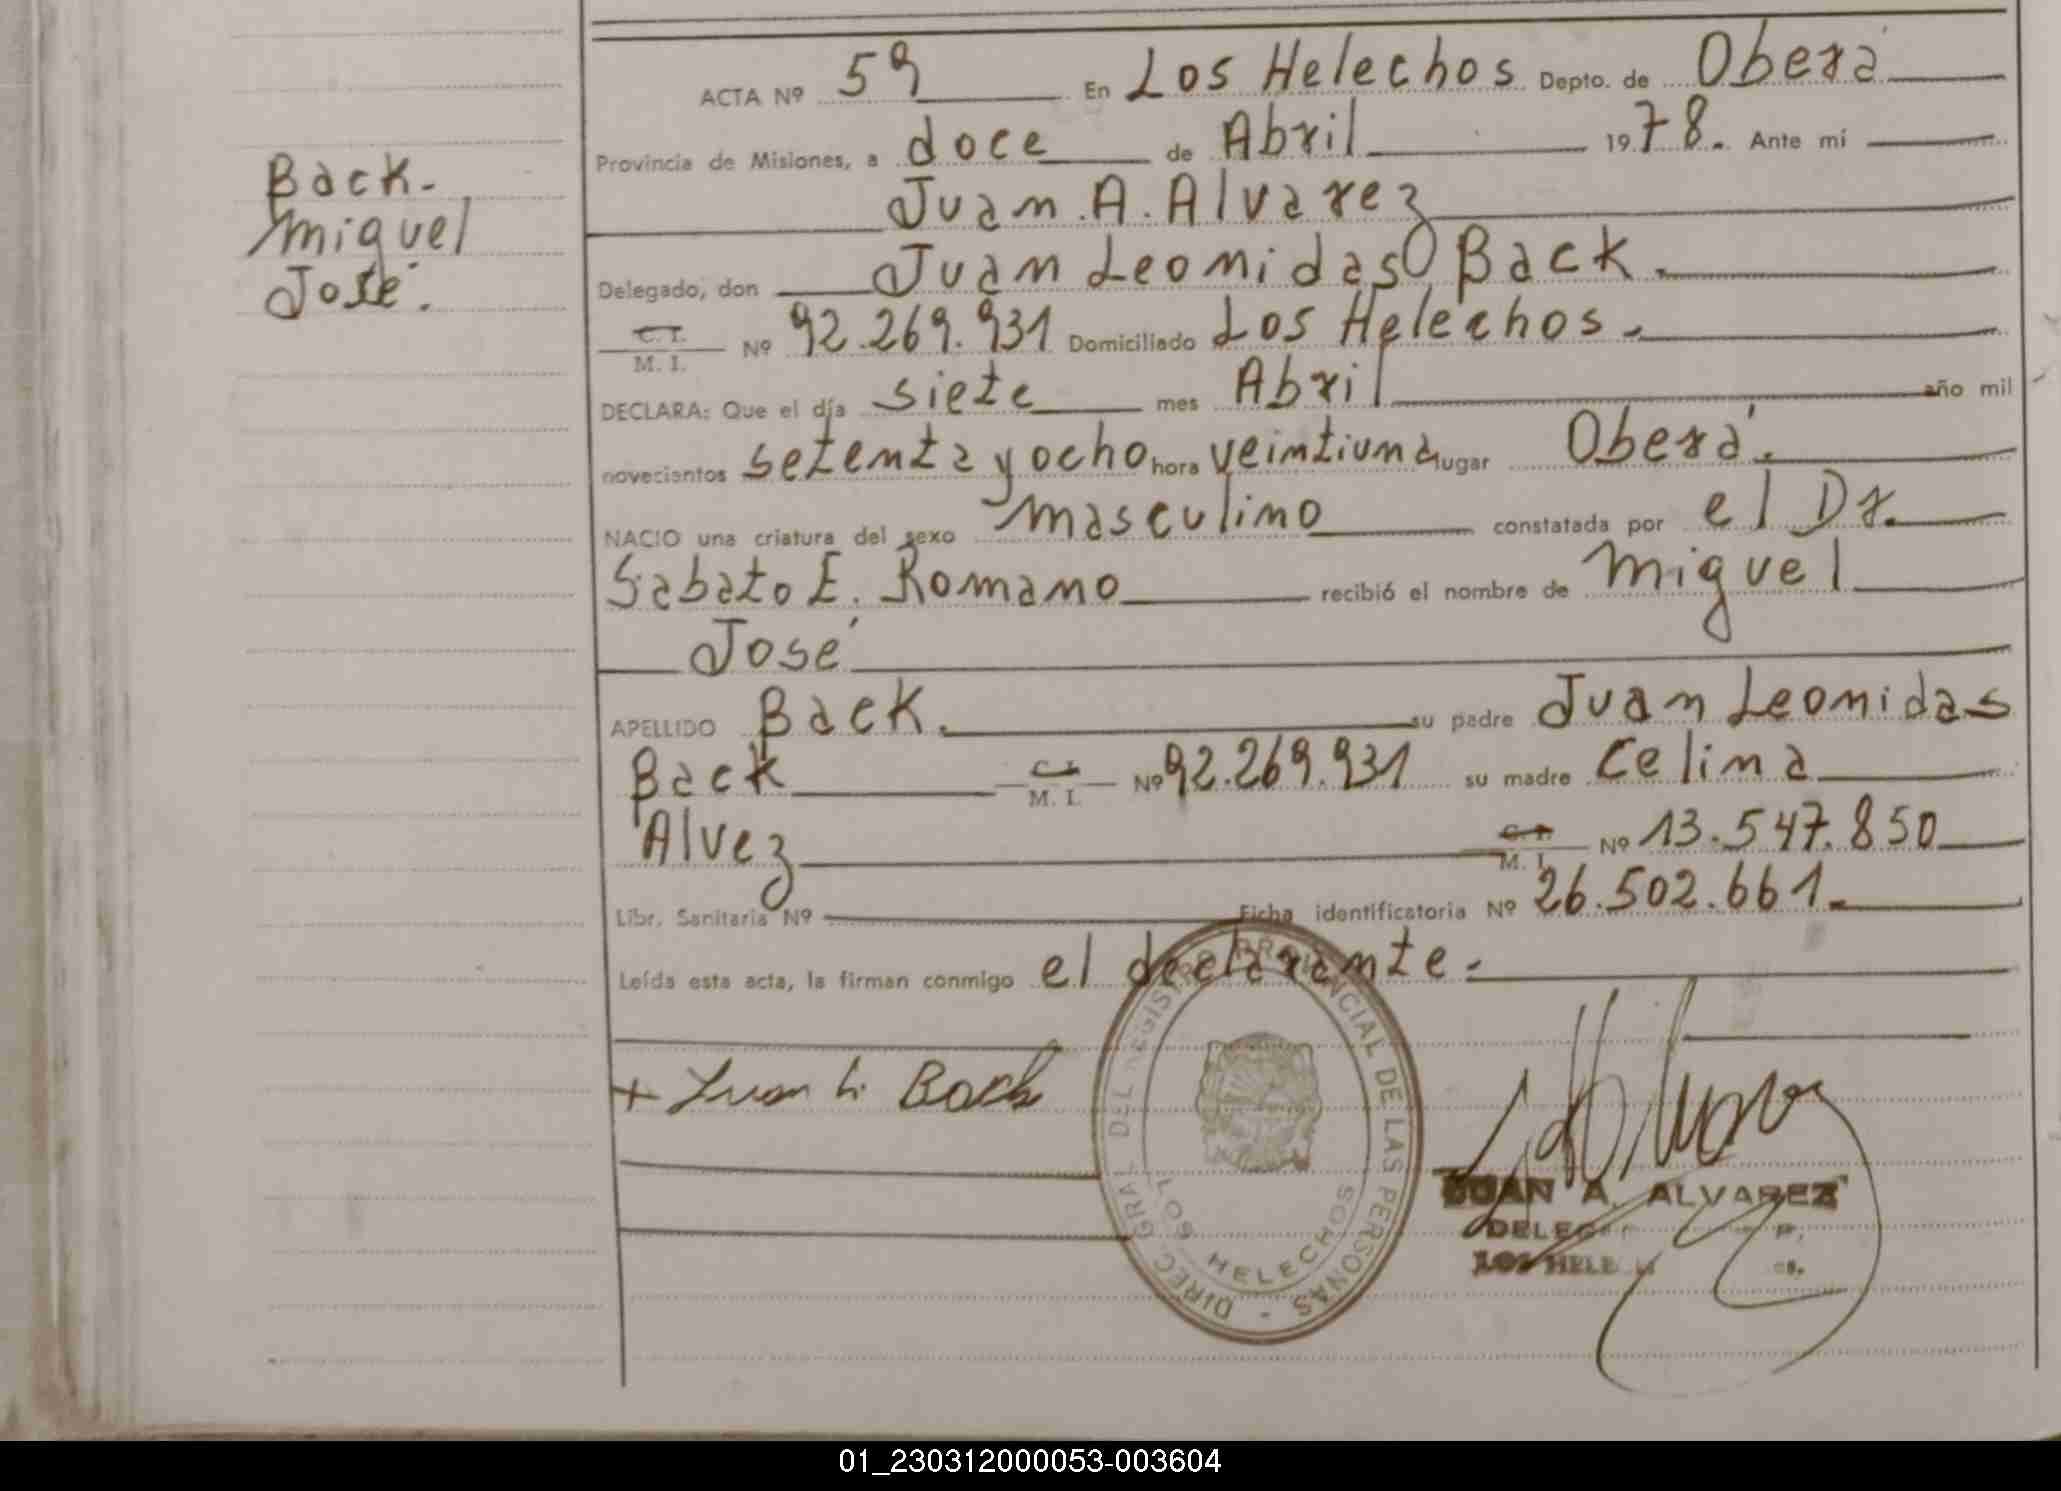 ACTA Nº 59 En Los Helechos Depto. de Oberá
Provincia de Misiones, a doce de Abril 1978. Ante mí
Juan. A. Alvarez
Back.
Miguel
José.
Delegado, don Juan Leonidas Back.
C. I.
M. I. Nº 92.269.931 Domiciliado Los Helechos.
DECLARA: Que el día siete mes Abril año mil
novecientos setenta y ocho hora veintiuna lugar Oberá.
NACIO una criatura del sexo masculino constatada por el Dr.
Sabato E. Romano recibió el nombre de Miguel
José
APELLIDO Back. su padre Juan Leonidas
Back C. I. M. I. Nº 92.269.931 su madre Celina
Alvez C. I. M. I. Nº 13.547.850
Libr. Sanitaria Nº Ficha identificatoria Nº 26.502.661.
Leída esta acta, la firman conmigo el declarante.
+ Juan L. Back
DIREC. GRAL. DEL REGISTRO PROVINCIAL DE LAS PERSONAS -
LOS HELECHOS
JUAN A. ALVAREZ
01_230312000053-003604